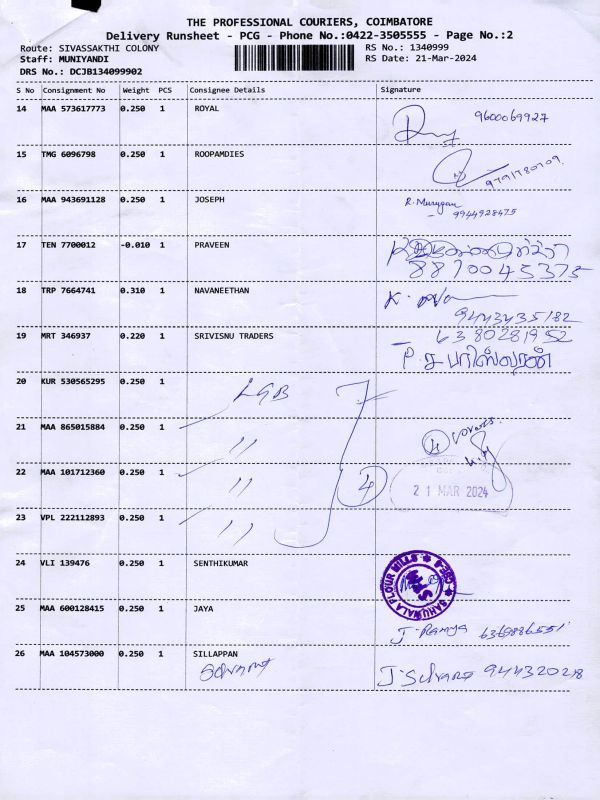 THE PROFESSIONAL COURIERS, COIMBATORE
Delivery Runsheet - PCG - Phone No.:0422-3505555 - Page No.:2
Route: SIVASSAKTHI COLONY RS No.: 1340999
Staff: MUNIYANDI RS Date: 21-Mar-2024
DRS No.: DCJB134099902
S No Consignment No Weight PCS Consignee Details Signature
14 MAA 573617773 0.250 1 ROYAL 9600069927
15 TMG 6096798 0.250 1 ROOPAMDIES 9791780709.
16 MAA 943691128 0.250 1 JOSEPH R. Murugan
9944928475
17 TEN 7700012 -0.010 1 PRAVEEN
8870045375
18 TRP 7664741 0.310 1 NAVANEETHAN K.
9443435182
19 MRT 346937 0.220 1 SRIVISNU TRADERS 6380281952
P.
20 KUR 530565295 0.250 1 LGB
21 MAA 865015884 0.250 1 "
4 covers.
22 MAA 101712360 0.250 1 " 4
21 MAR 2024
23 VPL 222112893 0.250 1 "
24 VLI 139476 0.250 1 SENTHIKUMAR
SAHUWALA FLOUR MILLS
25 MAA 600128415 0.250 1 JAYA
J. Ramya 6369886551
26 MAA 104573000 0.250 1 SILLAPPAN
J. Selvaraj 944320218